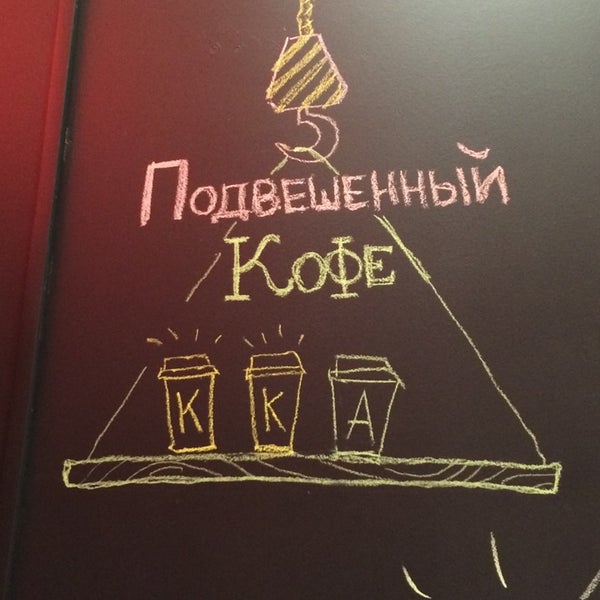 Подвешенный
Кофе
К К А